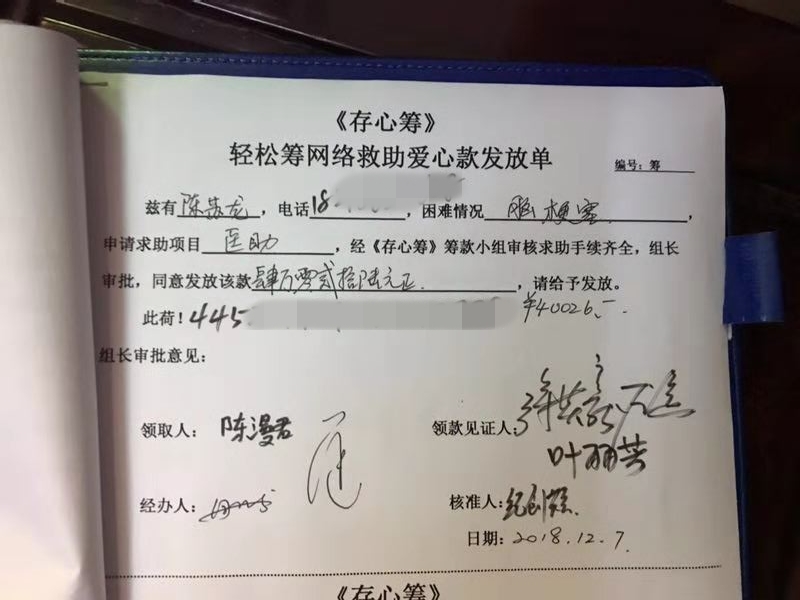 《存心筹》
轻松筹网络救助爱心款发放单
编号：筹
兹有陈龙，电话18，困难情况脑梗塞，
申请求助项目医助，经《存心筹》筹款小组审核求助手续齐全，组长
审批，同意发放该款肆万零贰拾陆元正，请给予发放。
此荷！445 ¥40026.-
组长审批意见：
领取人：陈漫君 领款见证人：
叶丽芸
经办人： 核准人：
日期：2018.12.7.
《存心筹》